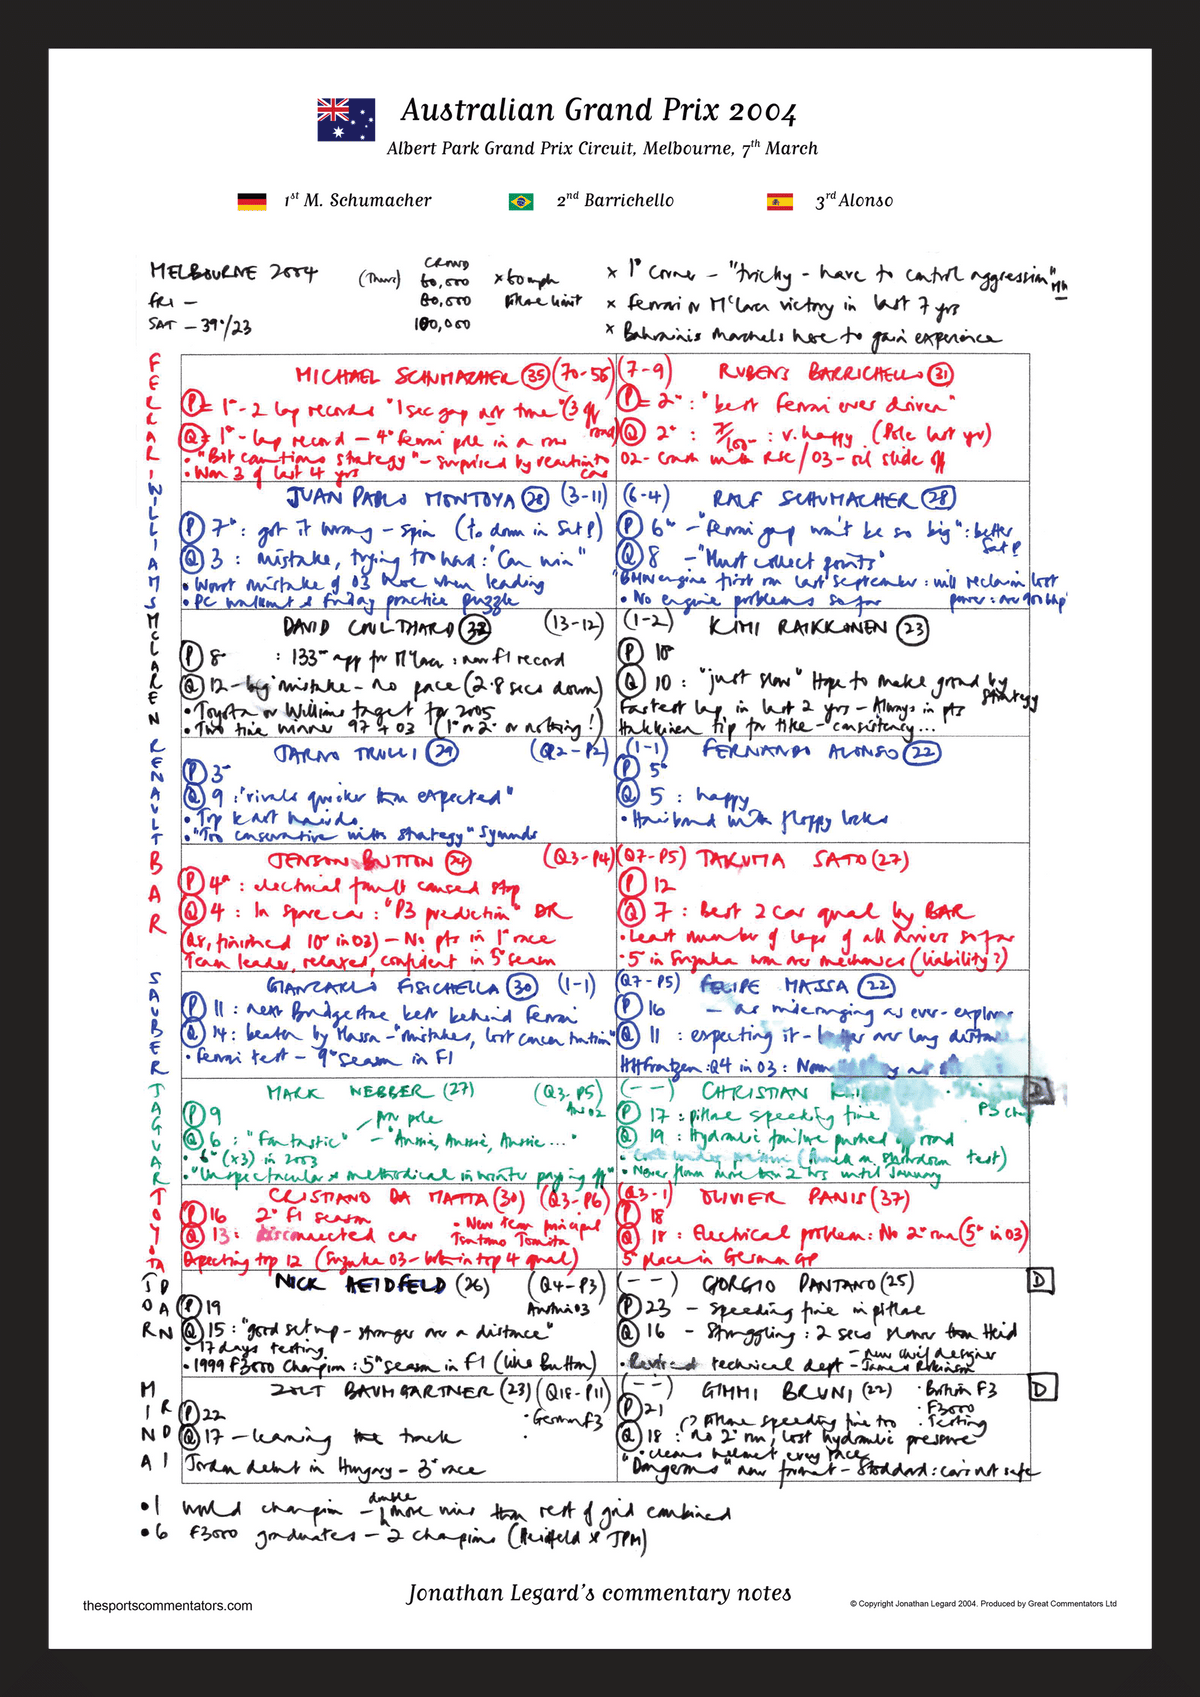 Australian Grand Prix 2004
Albert Park Grand Prix Circuit, Melbourne, 7th March
1st M. Schumacher 2nd Barrichello 3rd Alonso
MELBOURNE 2004 (Thurs) CROWD 60,000 × 60mph × 1st corner - "tricky - have to control aggression" MH
FRI - 80,000 pitlane limit × Ferrari or McLaren victory in last 7 yrs
SAT - 39°/23 100,000 × Bahrainis marshals here to gain experience
FERRARI
MICHAEL SCHUMACHER (35) (70-56)
P = 1st - 2 lap records "1 sec gap not true" (3 off road)
Q = 1st - lap record - 4th Ferrari pole in a row
• "Bit cautious strategy" - surprised by reaction to car
• Won 3 of last 4 yrs
(7-9) RUBENS BARRICHELLO (31)
P = 2nd : "best Ferrari ever driven"
Q 2nd : /100 : v. happy (Pole last yr)
02 - crash with RSC / 03 - oil slide off
WILLIAMS
JUAN PABLO MONTOYA (28) (3-11)
P 7th : got it wrong - spin (10 down in Sat P)
Q 3 : mistake, trying too hard : "Can win"
• Worst mistake of 03 here when leading
• PC walkout & Friday practice puzzle
(6-4) RALF SCHUMACHER (28)
P 6th - "Ferrari gap won't be so big" : better Sat P
Q 8 - "Must collect points"
"BMW engine first run last September : will reclaim lost power : over 900 bhp
• No engine problems so far
McLAREN
DAVID COULTHARD (32) (13-12)
P 8th : 133rd app for McLaren : new F1 record
Q 12 - big mistake - no pace (2.8 secs down)
• Toyota or Williams target for 2005
• Two time winner 97 + 03 (1st or 2nd or nothing!)
(1-2) KIMI RAIKKONEN (23)
P 10th
Q 10 : "just slow" Hope to make ground by strategy
Fastest lap in last 2 yrs - Always in pts
Hakkinen tip for title - consistency...
RENAULT
JARNO TRULLI (29) (Q2-P2)
P 3rd
Q 9 : "rivals quicker than expected"
• Top kart hairdo
• "Too conservative with strategy" Symonds
(1-1) FERNANDO ALONSO (22)
P 5th
Q 5 : happy
• Hairband with floppy locks
BAR
JENSON BUTTON (24) (Q3-P4)
P 4th : electrical fault caused stop
Q 4 : In spare car : "P3 prediction" DR
(Q8, finished 10th in 03) - No pts in 1st race
Team leader, relaxed, confident in 5th season
(Q7-P5) TAKUMA SATO (27)
P 12
Q 7 : Best 2 car qual by BAR
• Least number of laps of all drivers so far
• 5th in Suzuka won over mechanics (liability?)
SAUBER
GIANCARLO FISICHELLA (30) (1-1)
P 11 : next Bridgestone best behind Ferrari
Q 14 : beaten by Massa - "mistakes, lost concentration"
• Ferrari test - 9th season in F1
(Q7-P5) FELIPE MASSA (22)
P 16 - as wide ranging as ever - explorer
Q 11 : expecting it - better over long distance
HHFrentzen : Q4 in 03 :
JAGUAR
MARK WEBBER (27) (Q3-P5) Aus 02
P 9 prov pole
Q 6 : "Fantastic" - "Aussie, Aussie, Aussie..."
• 6th (x3) in 2003
• "Unspectacular & methodical in winter paying off"
(--) CHRISTIAN K D
P 17 : pitlane speeding fine P3
Q 19 : Hydraulic failure pushed road
test)
• Never flown more than 2 hrs until January
TOYOTA
CRISTIANO DA MATTA (30) (Q3-P6)
P 16 2nd F1 season • New team principal Tsutomu Tomita
Q 13 : disconnected car
Expecting top 12 (Suzuka 03 - both in top 4 qual)
(Q3-1) OLIVIER PANIS (37)
P 18
Q 18 : Electrical problem : No 2nd run (5th in 03)
5th place in German GP
JORDAN
NICK HEIDFELD (26) (Q4-P3) Austria 03
P 19
Q 15 : "good set up - stronger over a distance"
• 17 days testing
• 1999 F3000 champion : 5th season in F1 (like Button)
(--) GIORGIO PANTANO (25) D
P 23 - Speeding fine in pitlane
Q 16 - Struggling : 2 secs slower than Heid
• Revised technical dept - new chief designer - James Robinson
MINARDI
ZSOLT BAUMGARTNER (23) (Q18-P11)
P 22 • German F3
Q 17 - learning the track
Jordan debut in Hungary - 3rd race
(--) GIMMI BRUNI (22) • British F3 D
P 21 • F3000
pitlane speeding fine too • Testing
Q 18 : no 2nd run, lost hydraulic pressure
• cleans helmet every race
"Dangerous" new format - Stoddard : cars not safe
• 1 world champion - double more wins than rest of grid combined
• 6 F3000 graduates - 2 champions (Heidfeld & JPM)
Jonathan Legard's commentary notes
thesportscommentators.com
© Copyright Jonathan Legard 2004. Produced by Great Commentators Ltd